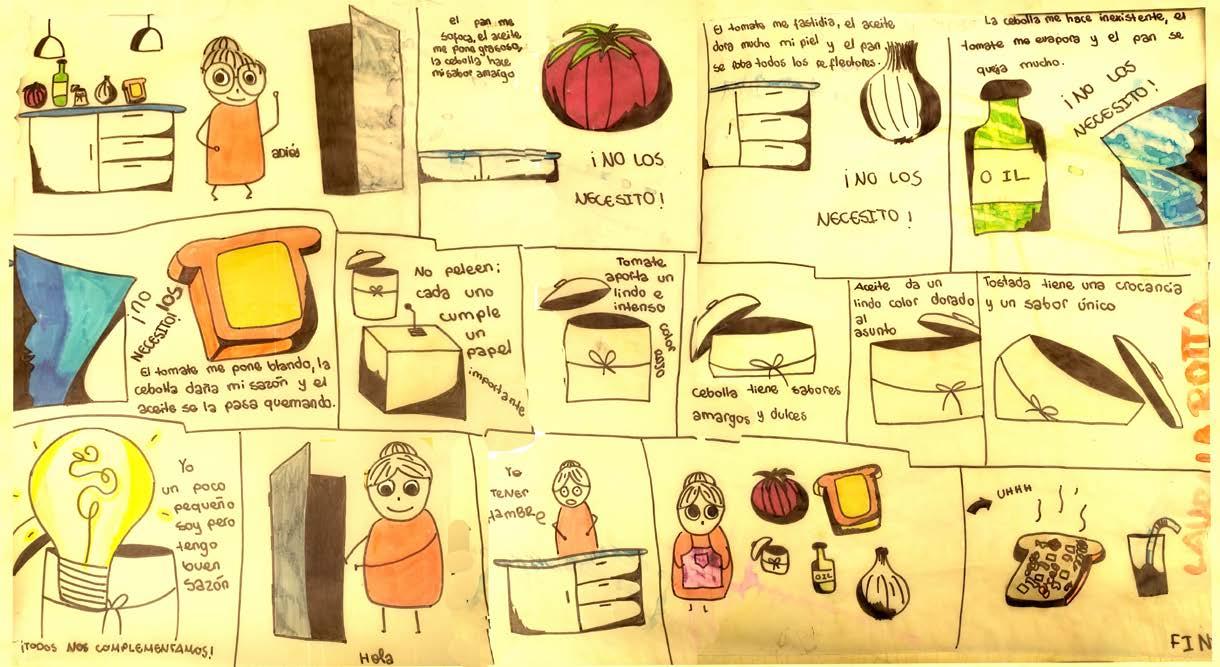 adiós
el pan me
sofoca, el aceite
me pone grasosa,
la cebolla hace
mi sabor amargo
¡NO LOS
NECESITO!
El tomate me fastidia, el aceite
dora mucho mi piel y el pan
se roba todos los reflectores.
¡NO LOS
NECESITO!
La cebolla me hace inexistente, el
tomate me evapora y el pan se
queja mucho.
¡NO LOS
NECESITO!
OIL
¡NO LOS
NECESITO!
El tomate me pone blando, la
cebolla daña mi sazón y el
aceite se la pasa quemando.
No peleen;
cada uno
cumple
un
papel
importante
Tomate
aporta un
lindo e
intenso
color rojo
cebolla tiene sabores
amargos y dulces
Aceite da un
lindo color dorado
al
asunto
Tostada tiene una crocancia
y un sabor único
LAURA LA ROTTA
Yo
un poco
pequeño
soy pero
tengo
buen
sazón
¡TODOS NOS COMPLEMENTAMOS!
Hola
Yo
TENER
HAMBRE
OIL
UHHH
FIN